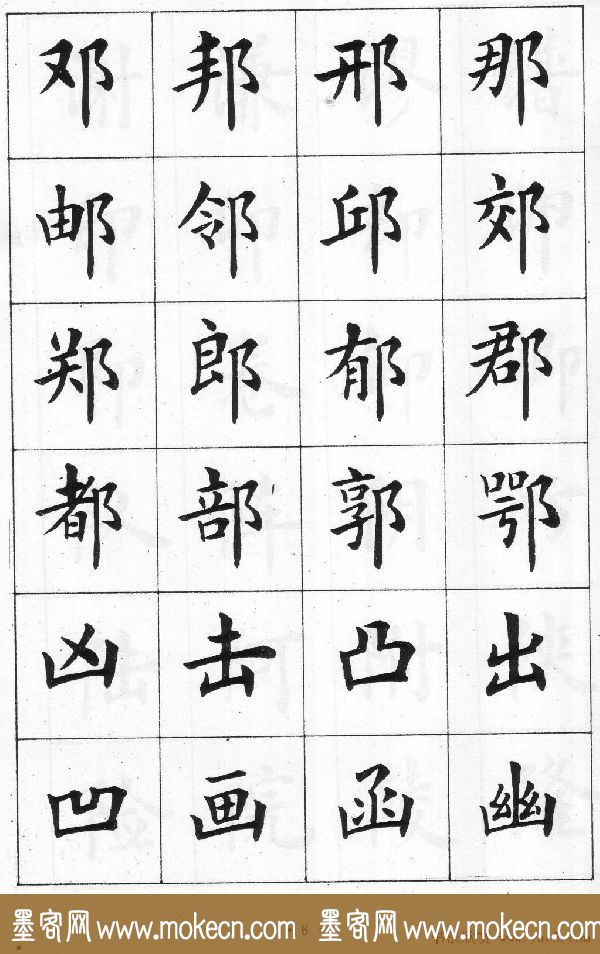 邓邦邢那
邮邻邱郊
郑郎郁郡
都部郭鄂
凶击凸出
凹画函幽
墨客网 www.mokecn.com 6 墨客网 www.mokecn.com